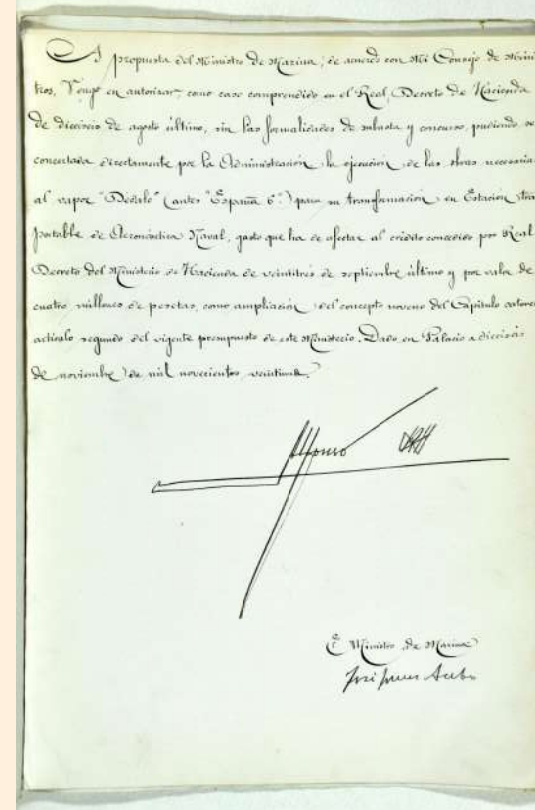 A propuesta del Ministro de Marina; de acuerdo con Mi Consejo de Minis
tros, Vengo en autorizar, como caso comprendido en el Real Decreto de Hacienda
de dieciseis de agosto último, sin las formalidades de subasta y concurso, pudiendo se
concertada directamente por la Administración, la ejecución de las obras necesaria
al vapor "Dédalo" (antes "España 6") para su transformación en Estación tras
portable de Aeronáutica Naval, gasto que ha de afectar al crédito concedido por Real
Decreto del Ministerio de Hacienda de veintitrés de septiembre último y por valor de
cuatro millones de pesetas, como ampliación del concepto noveno del Capítulo catorce
artículo segundo del vigente presupuesto de este Ministerio. Dado en Palacio a dieciséis
de noviembre de mil novecientos veintiuno.
Alfonso
El Ministro de Marina
José